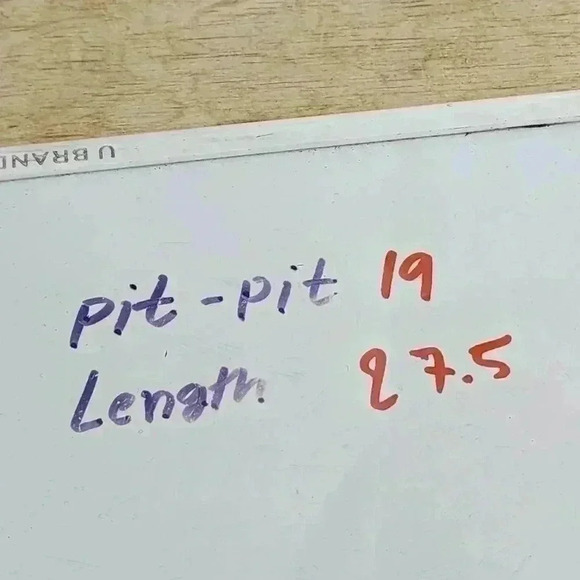 U BRAND
pit - pit 19
Length 27.5